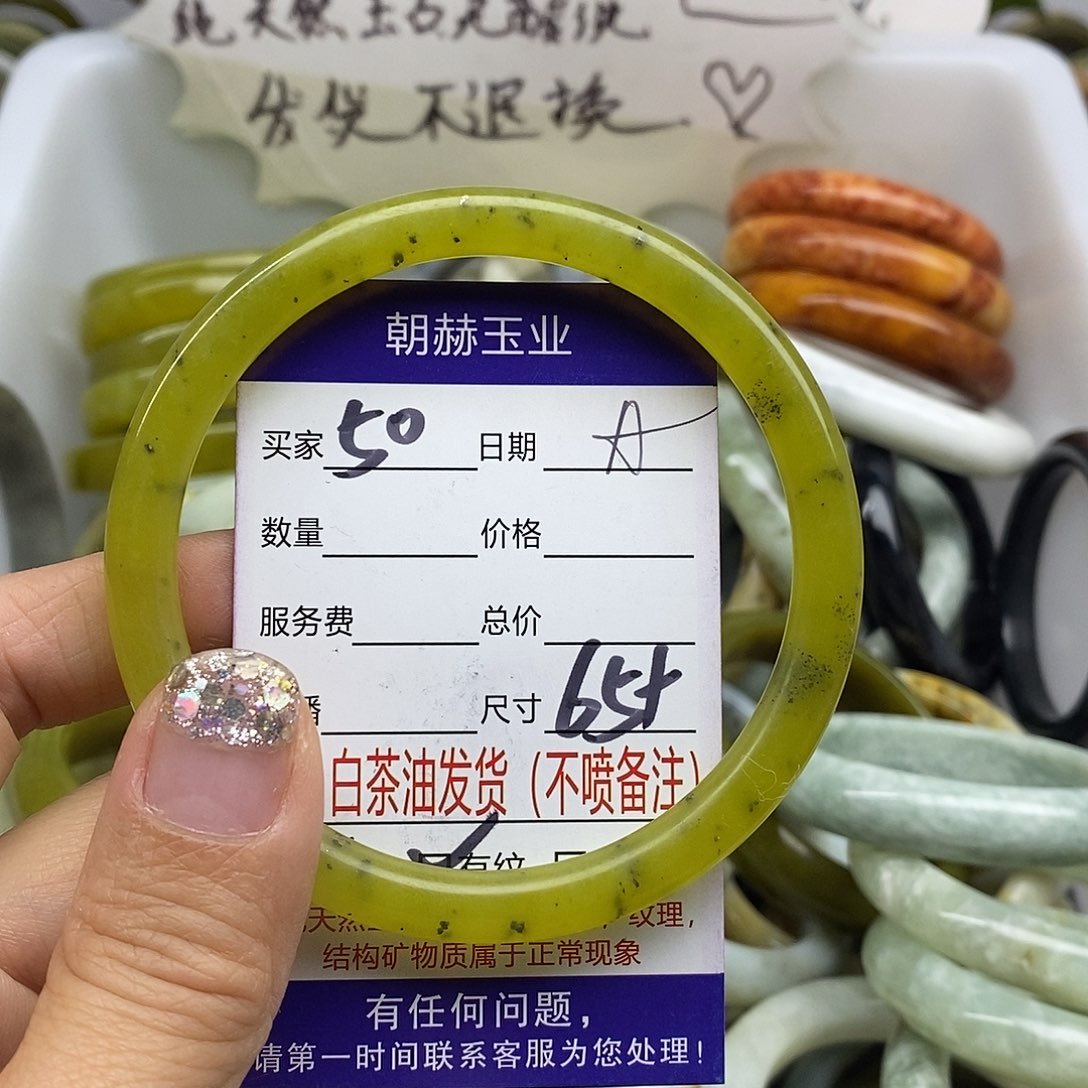 发货不退换
朝赫玉业
买家 50 日期 A
数量 价格
服务费 总价
播 尺寸 65+
白茶油发货（不喷备注）
有纹
天然 纹理，
结构矿物质属于正常现象
有任何问题，
请第一时间联系客服为您处理！